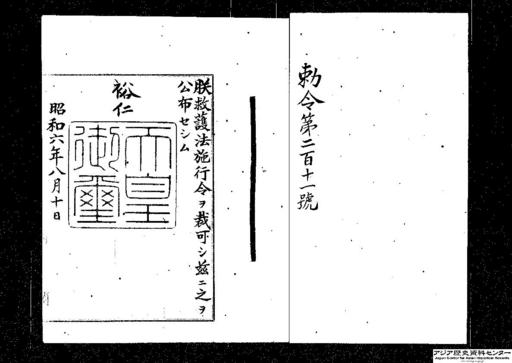 勅令第二百十一號
朕救護法施行令ヲ裁可シ茲ニ之ヲ
公布セシム
裕仁
天皇
御璽
昭和六年八月十日
アジア歴史資料センター
Japan Center for Asian Historical Records